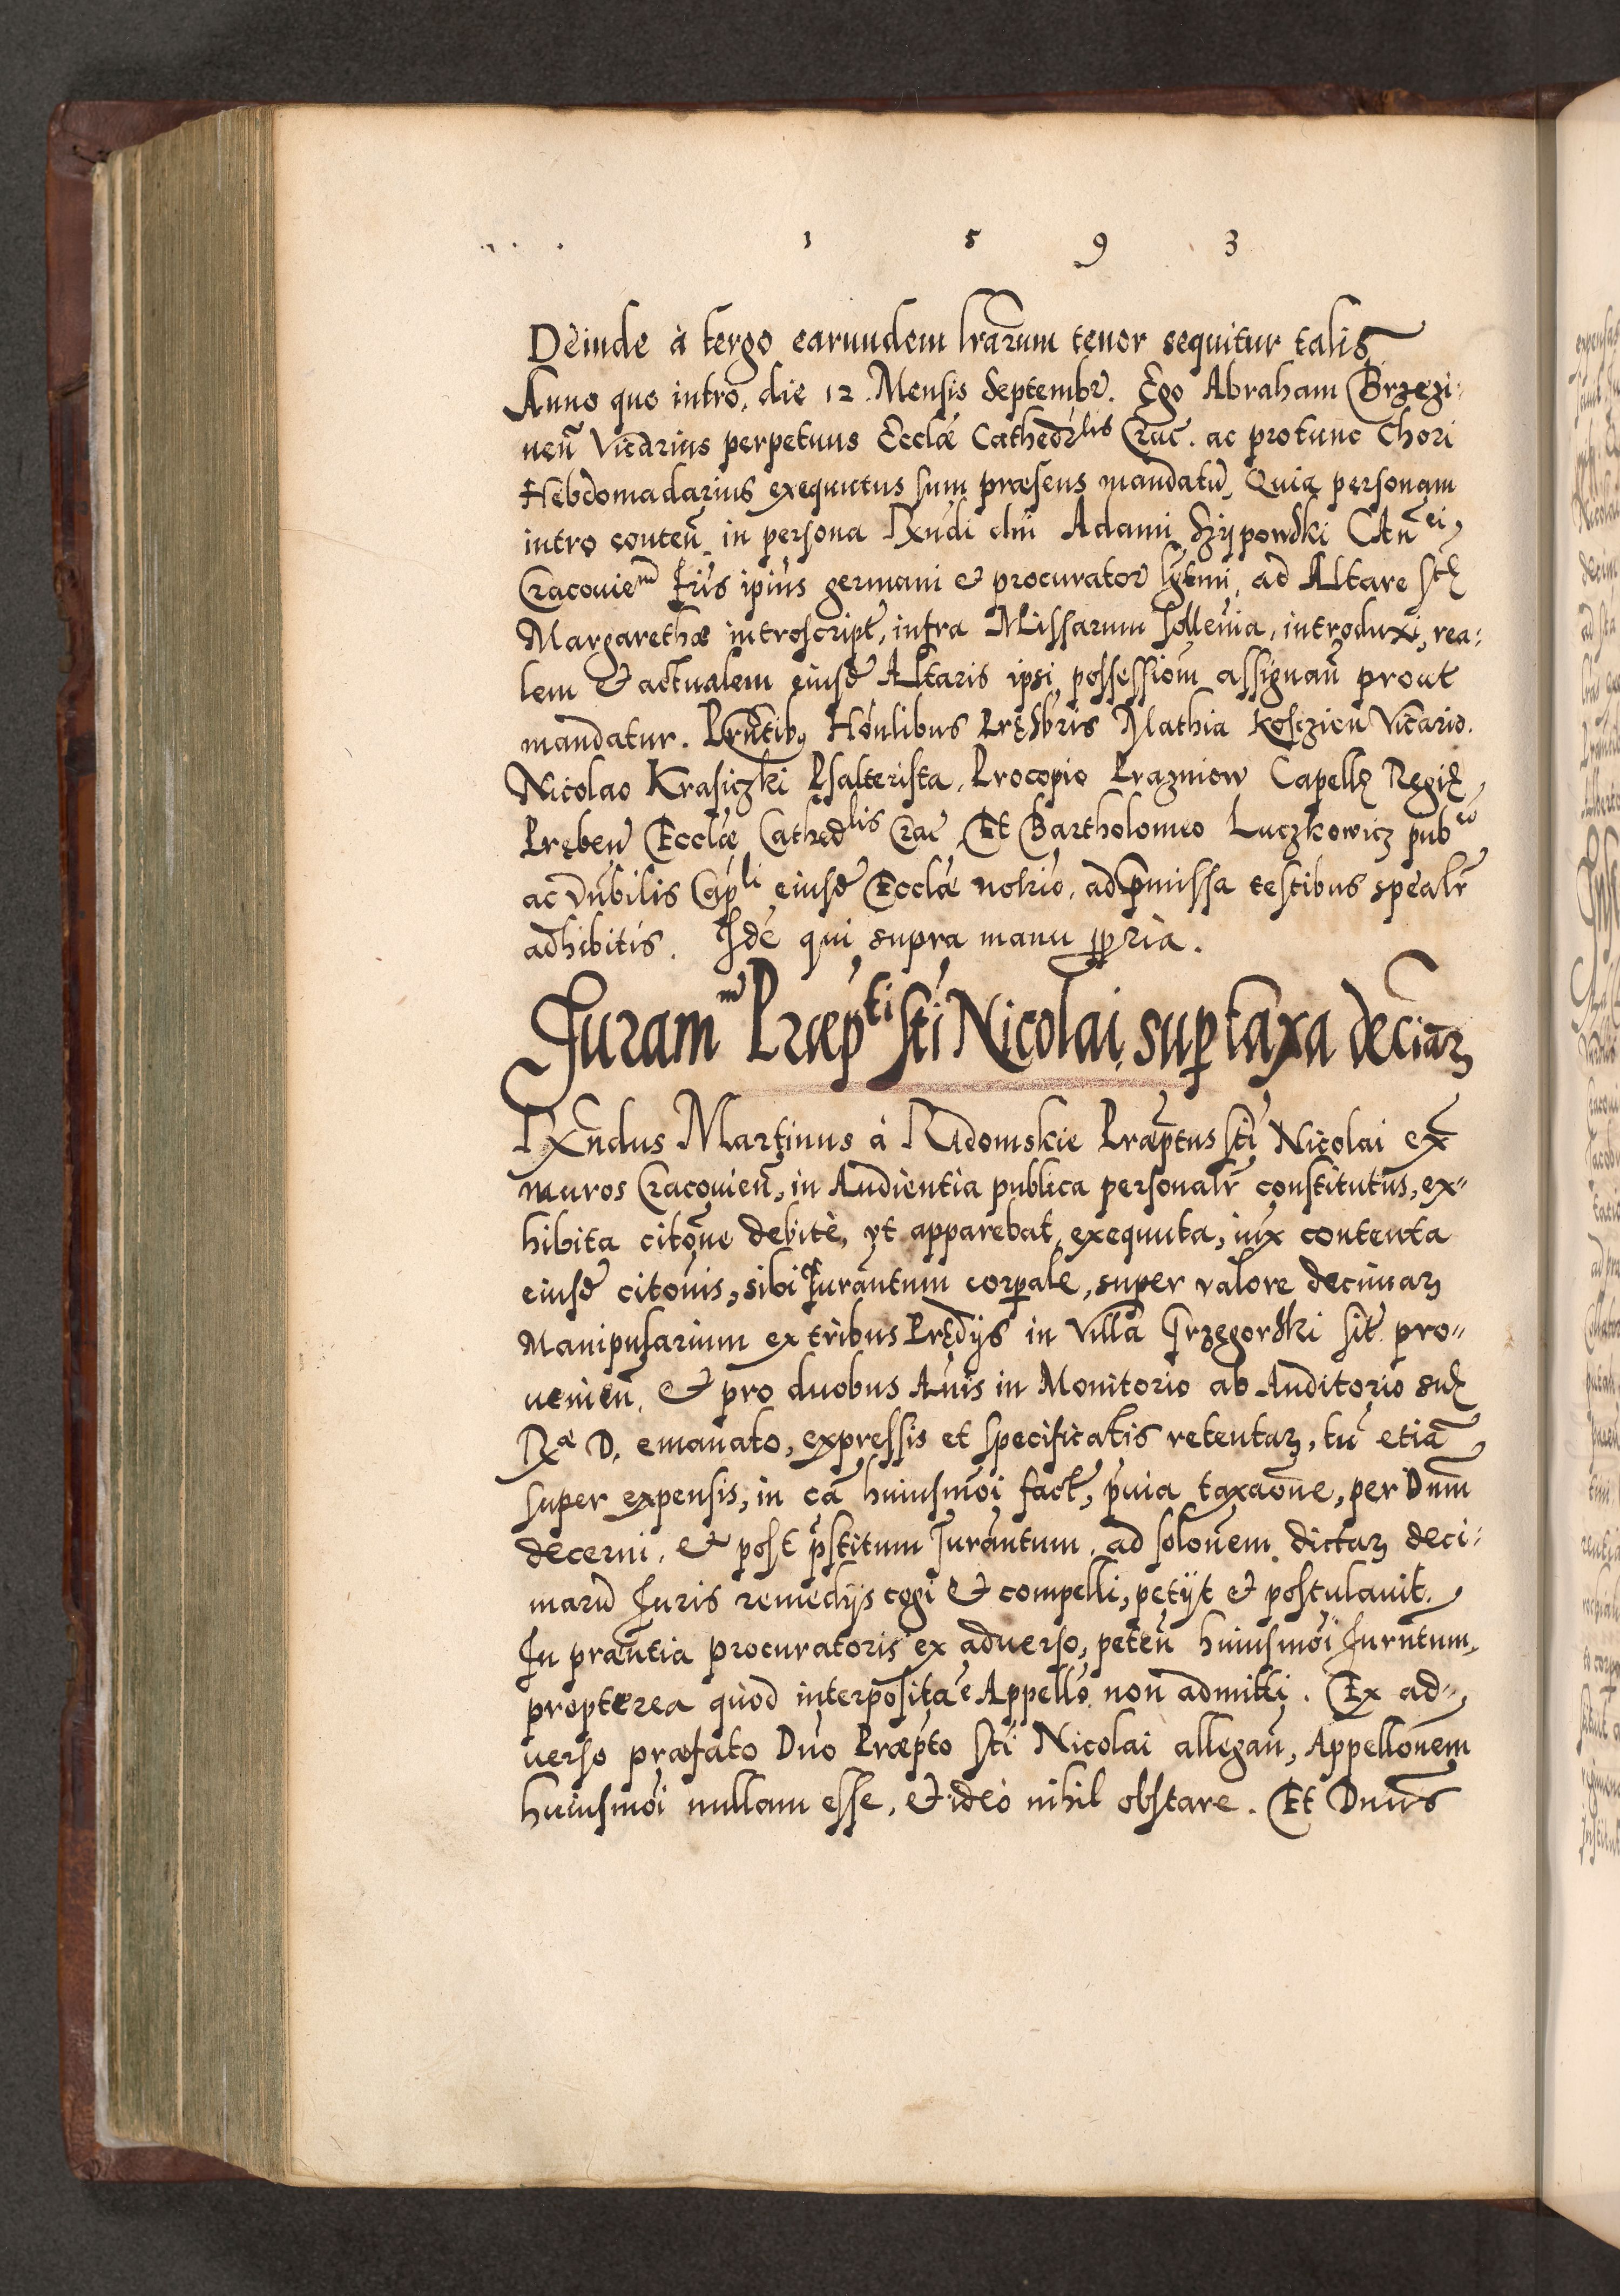 1 5 9 3
Deinde à tergo earundem lrãrum tenor sequitur talis
Anno quo intro, die 12 Mensis Septembr. Ego Abraham Brzezi:
neñ Vicãrius perpetuus Ecclãe Cathedrlis Crac. ac protunc Chori
Hebdomadarius exequutus sum præsens mandatũ, Quia personam
intro conteñ in persona Rxñdi dñi Adami Szypowski Cañci,
Cracovieñ fris ipius germani & procurator lgtmi, ad Altare stę
Margarethæ introscript, infra Missarum sollenia, introduxi, rea:
lem & actualem eiusd Altaris ipsi possessiom assignañ prout
mandatur. Prñtibꝯ Honlibus Pręsbris Mathia Kosczien Vicario.
Nicolao Krasiczki Psalterista, Procopio Prazmow Capellę Regię
Prębeñ Ecclæ Cathedlis Crac Et Bartholomeo Luczkowicz pubco
ac vñbilis Capli eiusd Ecclæ nohio, ad pmissa testibus spealr
adhibitis. Idẽ qui supra manu ppria.
Juramm Præpti sti Nicolai, sup taxa deciãꝝ
Rxñdus Martinus à Radomskie Præptus sti Nicolai ex
muros Cracovieñ, in Audientia publica personalr constitutus, ex"
hibita citone debitè, vt apparebat, exequuta, iux contenta
eiusd citonis, sibi Jurãntum corpale, super valore decimaꝝ
Manipularium ex tribus Prędijs in Villa Grzegorski sit pro"
venieñ, & pro duobus Anis in Monitorio ab Auditorio suę
Ræ D. emanato, expressis et specificatis retentaꝝ, tũ etiã
super expensis, in cã huiusmõi fact, puia taxaone, per Dnm
decerni, & post pstitum Jurãntum, ad solonem dictaꝝ deci:
marũ Juris remedijs cogi & compelli, petijt & postulavit.
In præntia procuratoris ex adverso, peteñ huiusmõi Jurntum,
propterea quod interposita è Appello non admitti. Ex ad"
verso præfato Dño Præpto sti Nicolai allegañ, Appellonem
huiusmõi nullam esse, & ideò nihil obstare. Et Dnus